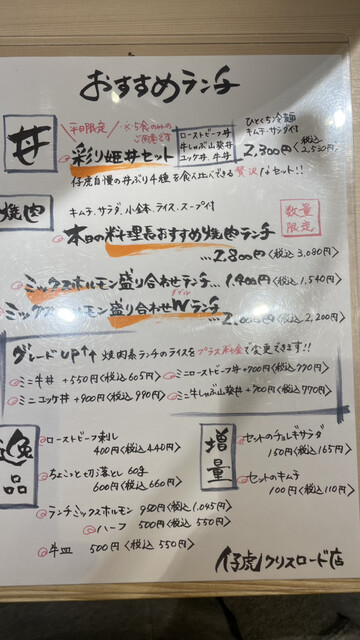 おすすめランチ
丼
平日限定
※5食のみのご用意です
彩り姫丼セット
ローストビーフ丼
牛しゃぶ山葵丼
ユッケ丼、牛丼
ひとくち冷麺
キムチ・サラダ付
2,300円〈税込2,530円〉
仔虎自慢の丼ぶり4種を食べ比べできる贅沢なセット!!
焼肉
キムチ、サラダ、小鉢、ライス、スープ付
数量限定
本日の料理長おすすめ焼肉ランチ
…2,800円〈税込3,080円〉
ミックスホルモン盛り合わせランチ …1,400円〈税込1,540円〉
ミックスホルモン盛り合わせWランチ
ダブル
…2,000円〈税込2,200円〉
グレードUP↑↑ 焼肉系ランチのライスをプラス料金で変更できます!!
ミニ牛丼 +550円〈税込605円〉
ミニローストビーフ丼 +700円〈税込770円〉
ミニユッケ丼 +900円〈税込990円〉
ミニ牛しゃぶ山葵丼 +700円〈税込770円〉
逸品
ローストビーフ刺し
400円〈税込440円〉
ちょこっと切り落とし 60g
600円〈税込660円〉
ランチミックスホルモン 950円〈税込1,045円〉
ハーフ 500円〈税込550円〉
牛皿 500円〈税込550円〉
増量
セットのチョレギサラダ
150円〈税込165円〉
セットのキムチ
100円〈税込110円〉
仔虎 クリスロード店